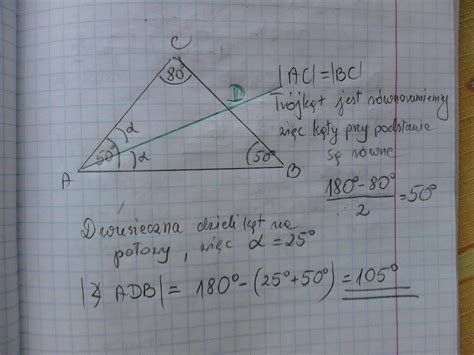 C
80°
D
|AC|=|BC|
Trójkąt jest równoramienny
więc kąty przy podstawie
są równe
α
50°
α
50°
A
B
180°-80°
2
=50°
Dwusieczna dzieli kąt na
połowy, więc α=25°
|∢ ADB|= 180°-(25°+50°)=105°